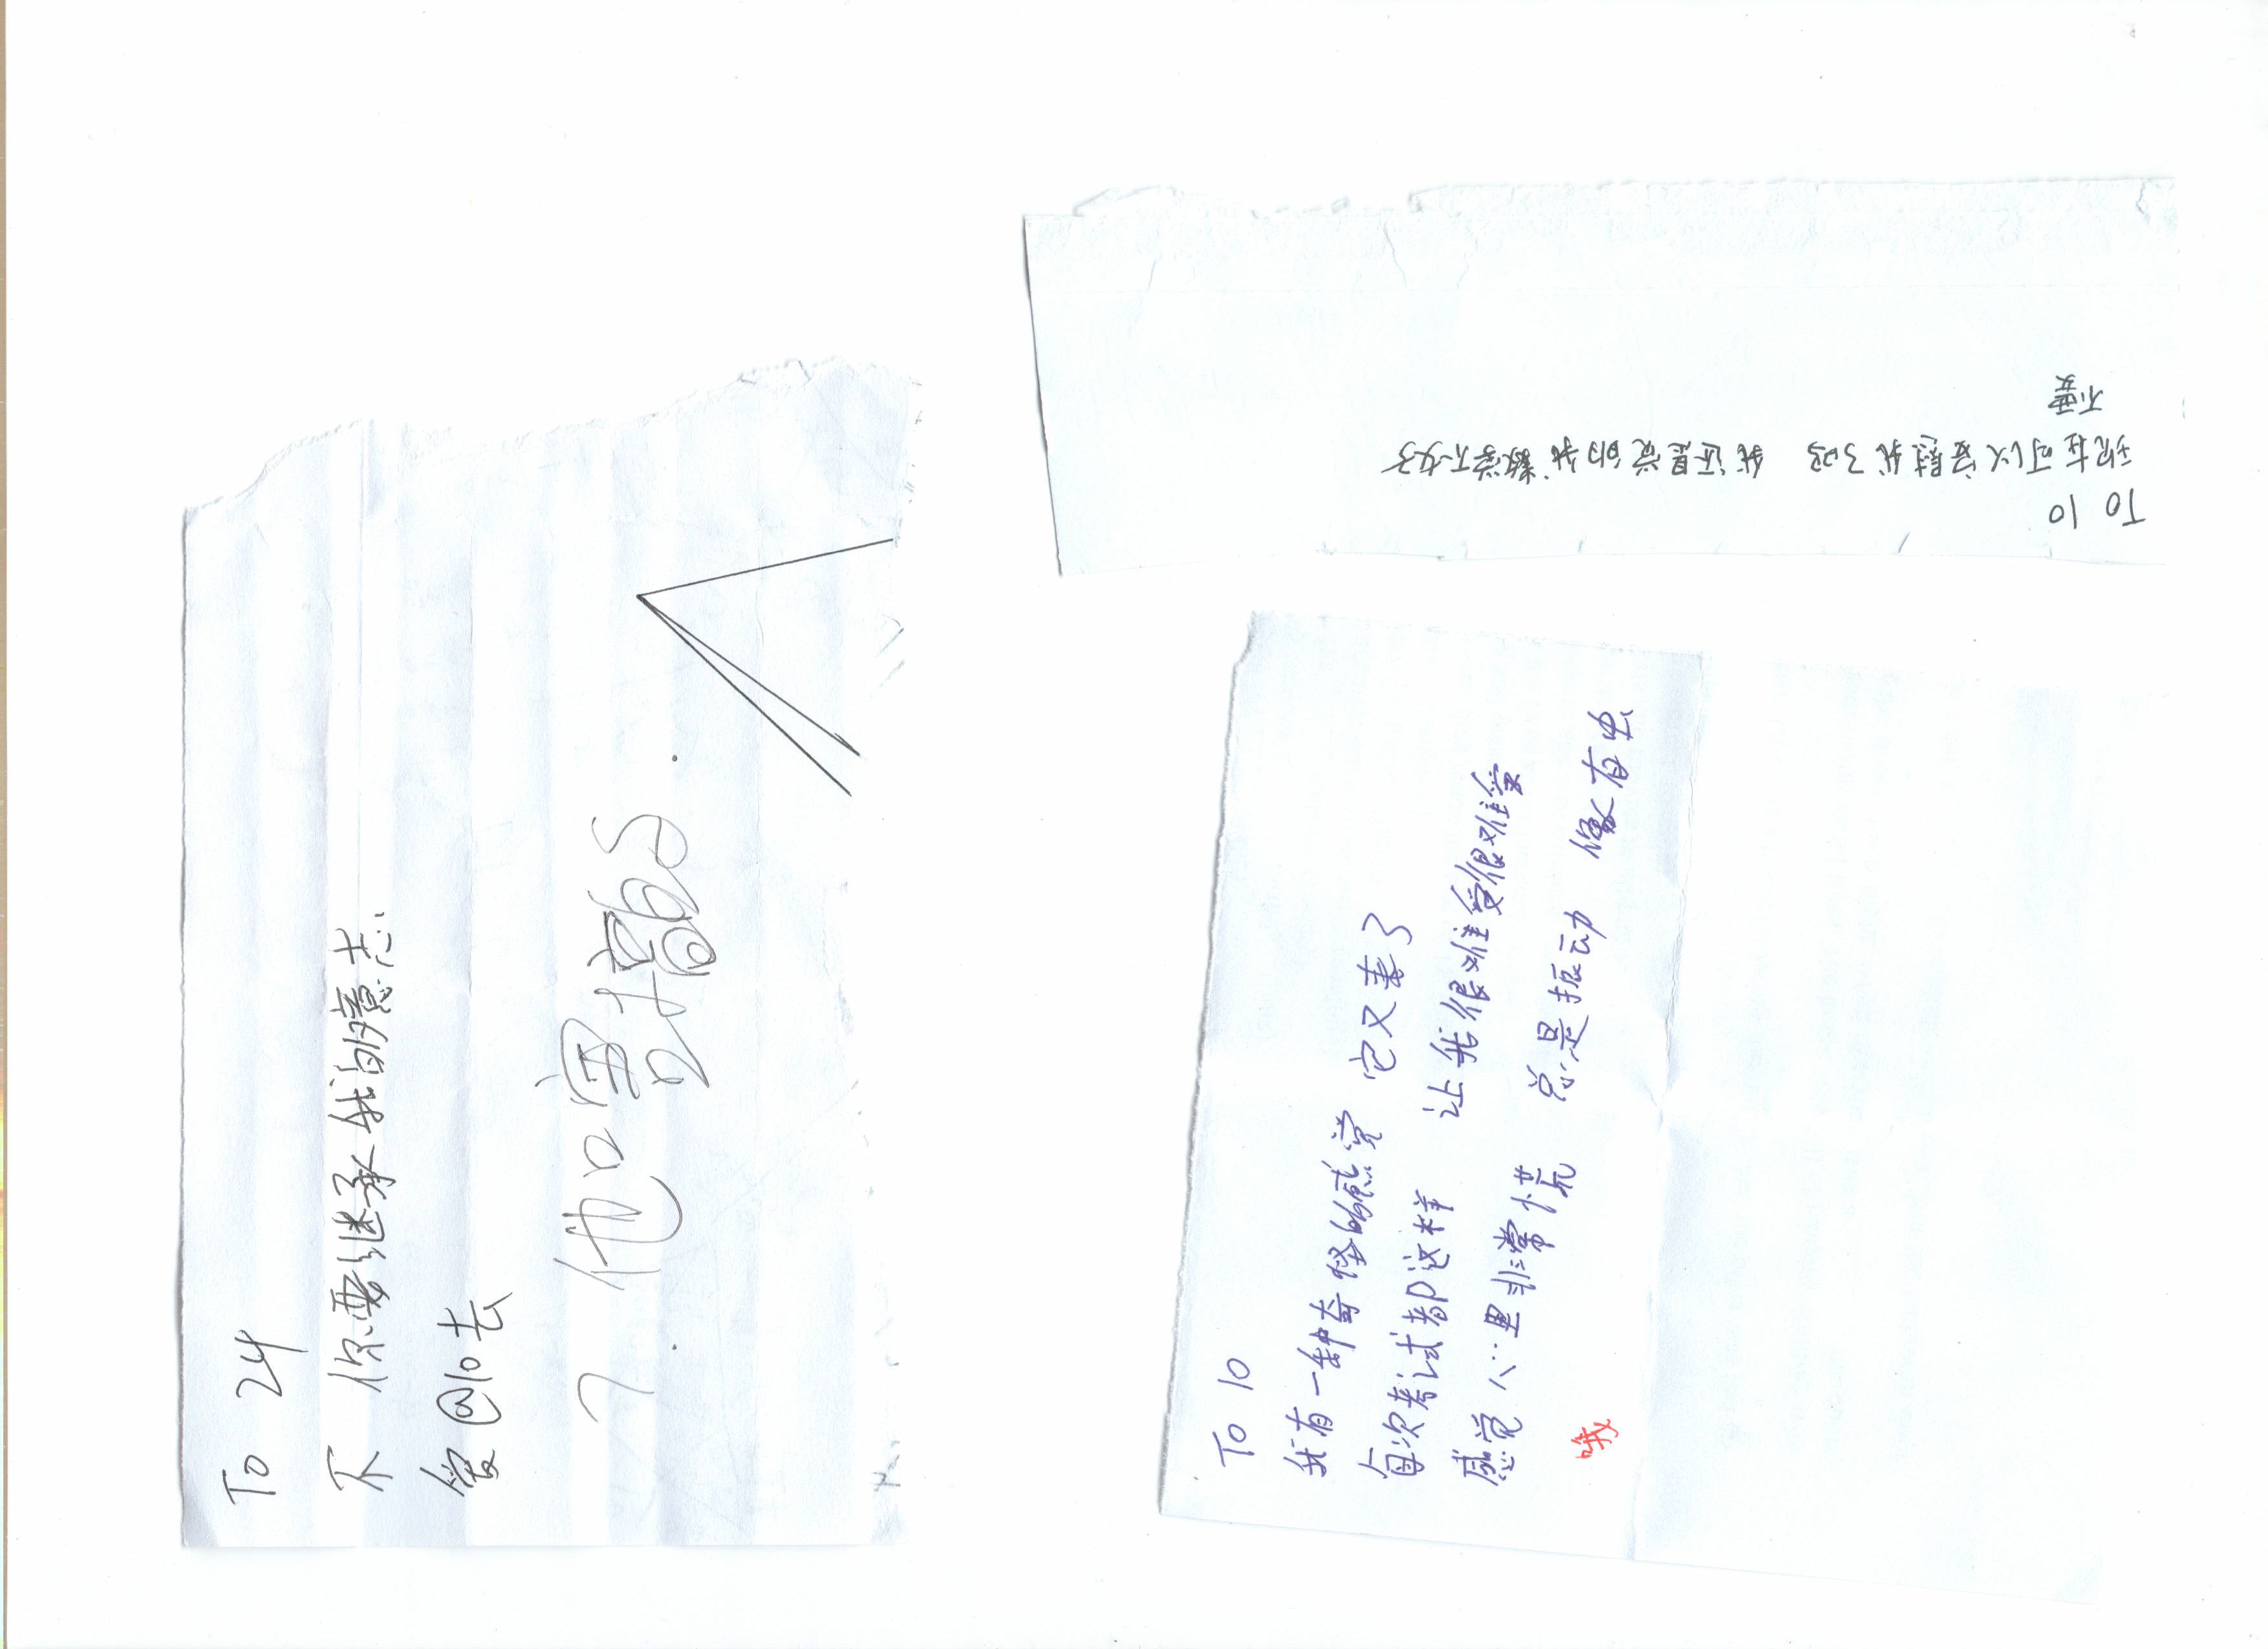 To 24
不 你要继承我的意志
管@10去
To 10
现在可以安慰我了吗 我还是觉的我数学不好
不要
To 10
我有一种奇怪的感觉 它又来了
每次考试都这样 让我很难受很难受
感觉心里非常慌 总是振动 像有虫
哦